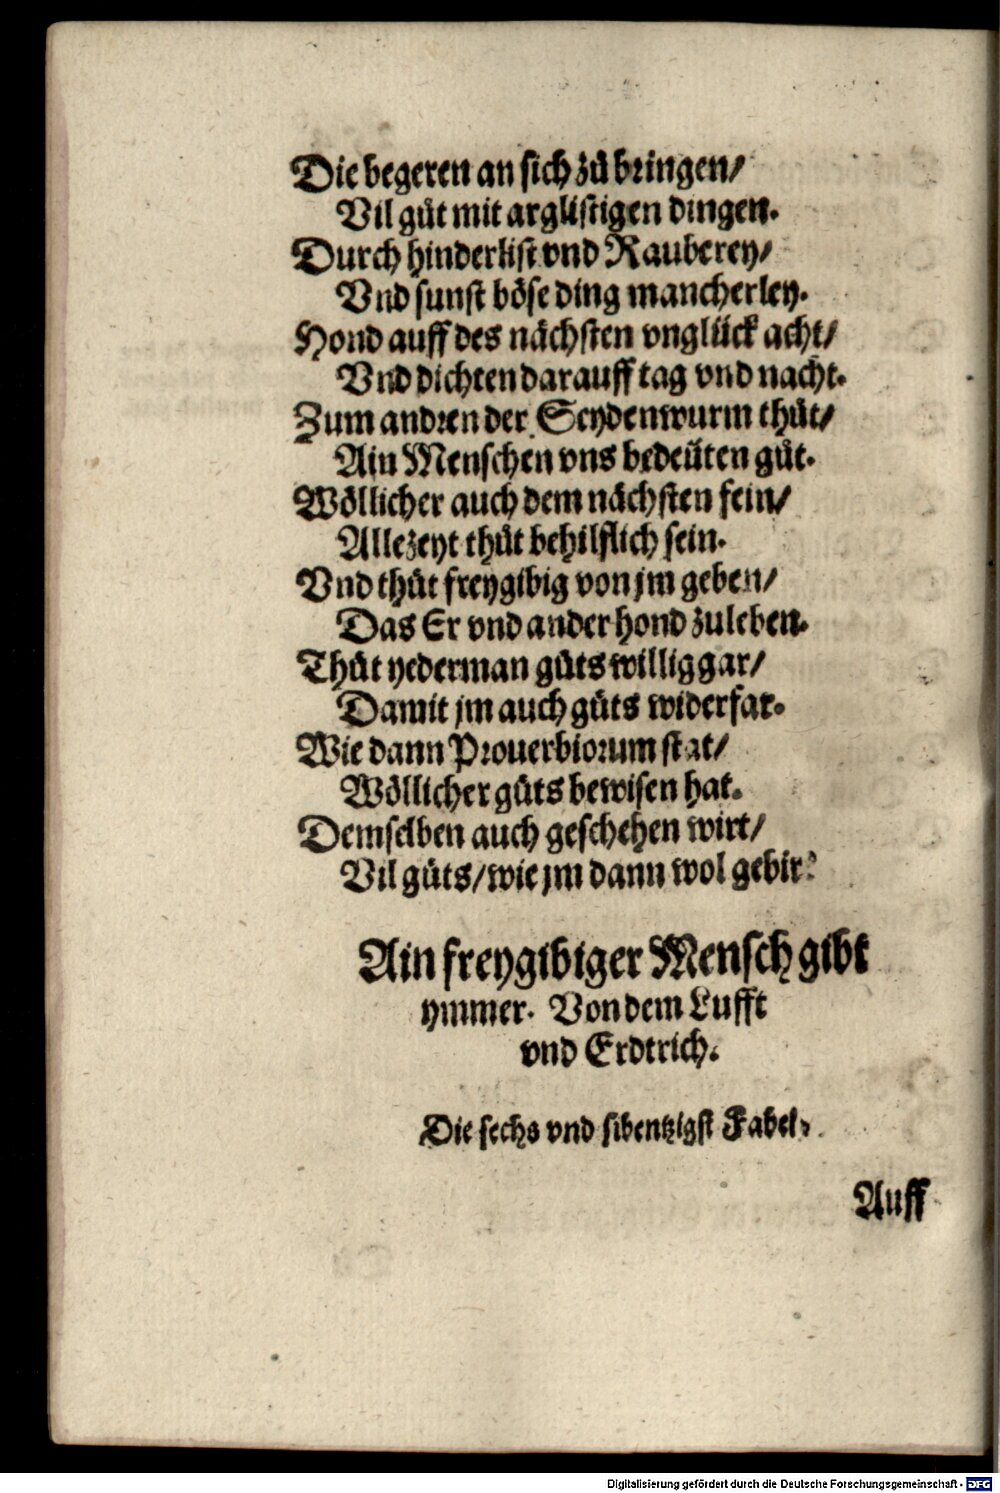 Die begeren an sich zů bringen/
Vil gůt mit arglistigen dingen.
Durch hinderlist vnd Rauberey/
Vnd sunst böse ding mancherley.
Hond auff des nächsten vnglück acht/
Vnd dichten darauff tag vnd nacht.
Zum andren der Seydenwurm thůt/
Ain Menschen vns bedeüten gůt.
Wöllicher auch dem nächsten fein/
Allezeyt thůt behilflich sein.
Vnd thůt freygibig von jm geben/
Das Er vnd ander hond zuleben.
Thůt yederman gůts willig gar/
Damit jm auch gůts widerfar.
Wie dann Prouerbiorum stat/
Wöllicher gůts bewisen hat.
Demselben auch geschehen wirt/
Vil gůts/wie jm dann wol gebirt
Ain freygibiger Mensch gibt
ymmer. Von dem Lufft
vnd Erdtrich.
Die sechs vnd sibentzigst Fabel.
Auff
Digitalisierung gefördert durch die Deutsche Forschungsgemeinschaft - DFG